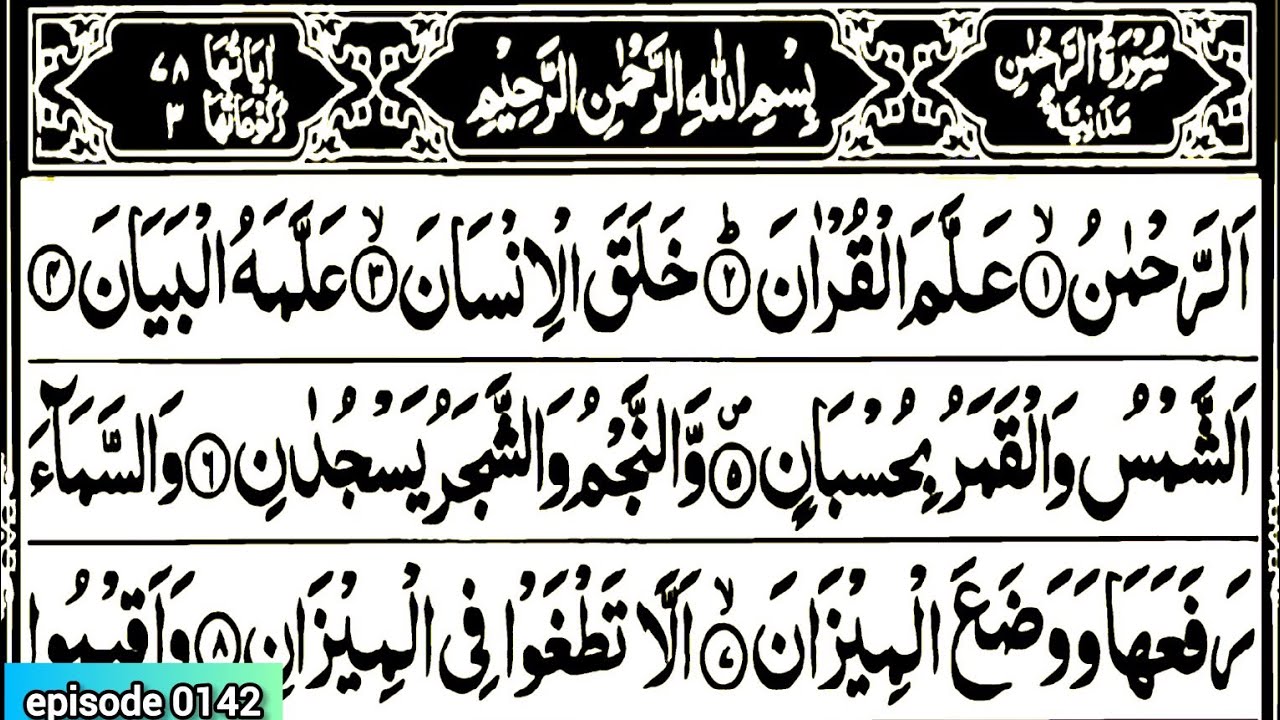 سُوْرَةُ الرَّحْمٰنِ
مَدَنِيَّةٌ
بِسْمِ اللّٰهِ الرَّحْمٰنِ الرَّحِيْمِ
اٰيَاتُهَا ٧٨
رُكُوْعَاتُهَا ٣
اَلرَّحْمٰنُ ۙ‏﴿۱﴾ عَلَّمَ الْقُرْاٰنَ ؕ‏﴿۲﴾ خَلَقَ الْاِنْسَانَ ۙ‏﴿۳﴾ عَلَّمَهُ الْبَيَانَ ﴿۴﴾
اَلشَّمْسُ وَالْقَمَرُ بِحُسْبَانٍ ۪‏﴿۵﴾ وَّالنَّجْمُ وَالشَّجَرُ يَسْجُدٰنِ ﴿۶﴾ وَالسَّمَآءَ
رَفَعَهَا وَوَضَعَ الْمِيْزَانَ ۙ‏﴿۷﴾ اَلَّا تَطْغَوْا فِى الْمِيْزَانِ ﴿۸﴾ وَاَقِيْمُوا
episode 0142